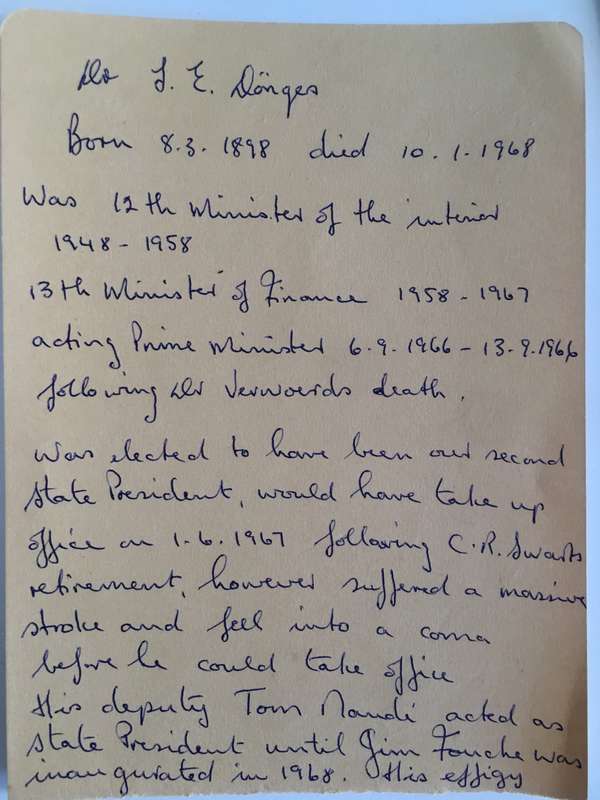 Dr T. E. Dönges
Born 8.3.1898 died 10.1.1968
Was 12th Minister of the interior
1948 - 1958
13th Minister of Finance 1958 - 1967
acting Prime Minister 6.9.1966 - 13.9.1966
following Dr Verwoerds death.
Was elected to have been our second
State President, would have take up
office on 1.6.1967 following C.R. Swarts
retirement, however suffered a massive
stroke and fell into a coma
before he could take office
His deputy Tom Naudé acted as
State President until Jim Fouche was
inaugurated in 1968. His effigy